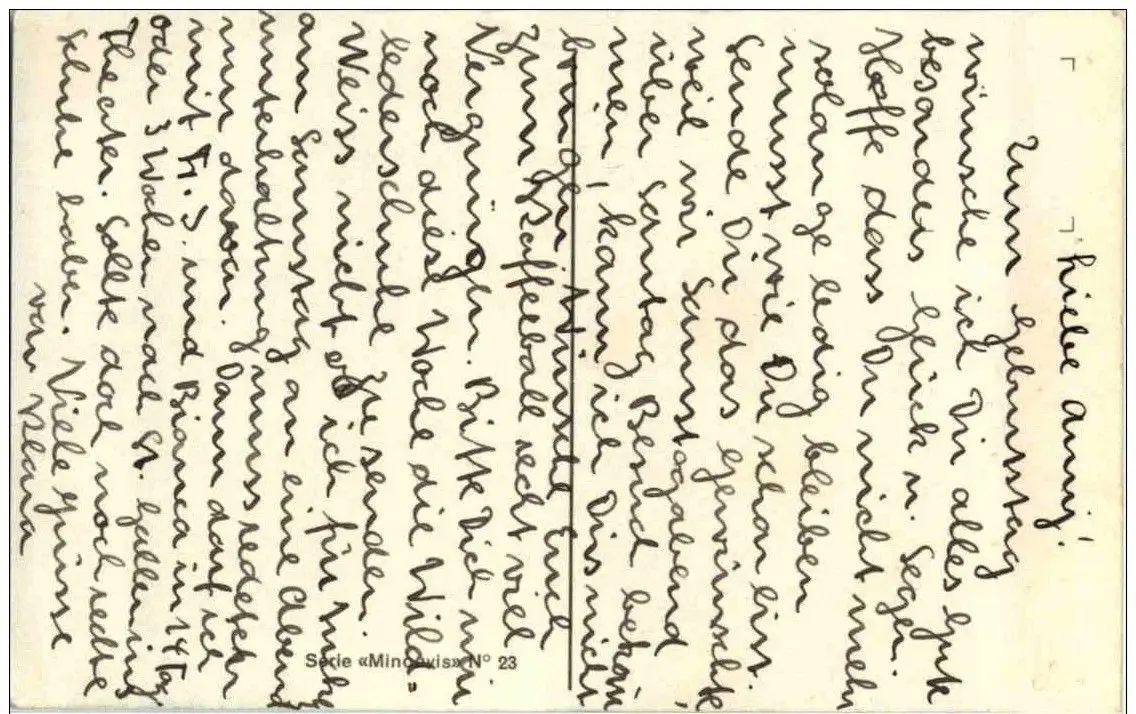 Liebe Anny!
Zum Geburtstag
wünsche ich Dir alles gute
besonders Glück u. Segen.
Hoffe dass Du nicht mehr
solange ledig bleiben
musst wie Du schon bist.
Sende Dir das gewünschte
weil wir Samstagabend,
über Sontag Besuch bekom
men, kann ich Dirs nicht
bringen. Wünsche Euch
zum Kaffeeball recht viel
Vergnügen. Bitte Dich mir
noch diese Woche die Wild„
lederschuhe zu senden.
Weis nicht ob ich für mich
am Samstag an eine Abend
unterhaltung muss redet
nun davon. Dann darf ich
mit Fr. J. und Bianca in 14 Tag
oder 3 Wochen nach St. Gallen ins
Theater. Sollte doch noch rechte
schuhe haben. Viele Grüsse
von Klara
Série «Mingevis» N° 23